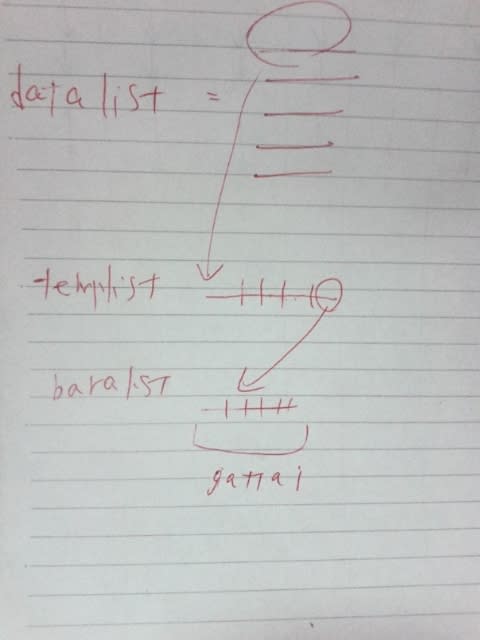 datalist =
templist
baralist
gattai